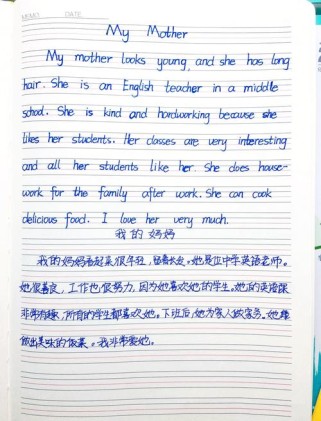 MEMO DATE
My Mother
My mother looks young, and she has long
hair. She is an English teacher in a middle
school. She is kind and hardworking because she
likes her students. Her classes are very interesting
and all her students like her. She does house-
work for the family after work. She can cook
delicious food. I love her very much.
我的妈妈
我的妈妈看起来很年轻,留着长发。她是位中学英语老师。
她很善良,工作也很努力,因为她喜欢她的学生。她的英语课
非常有趣,所有的学生都喜欢她。下班后,她为家人做家务。她能
做出美味的饭菜。我非常爱她。